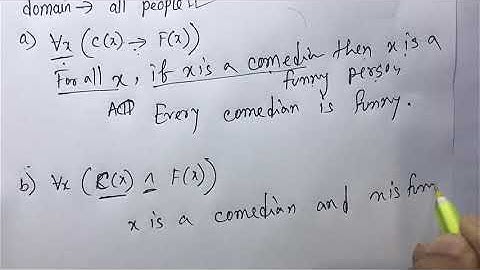 domain → all people
a) ∀x (C(x) → F(x))
For all x, if x is a comedian then x is a
funny person
Every comedian is funny.
b) ∀x (C(x) ∧ F(x))
x is a comedian and x is funn